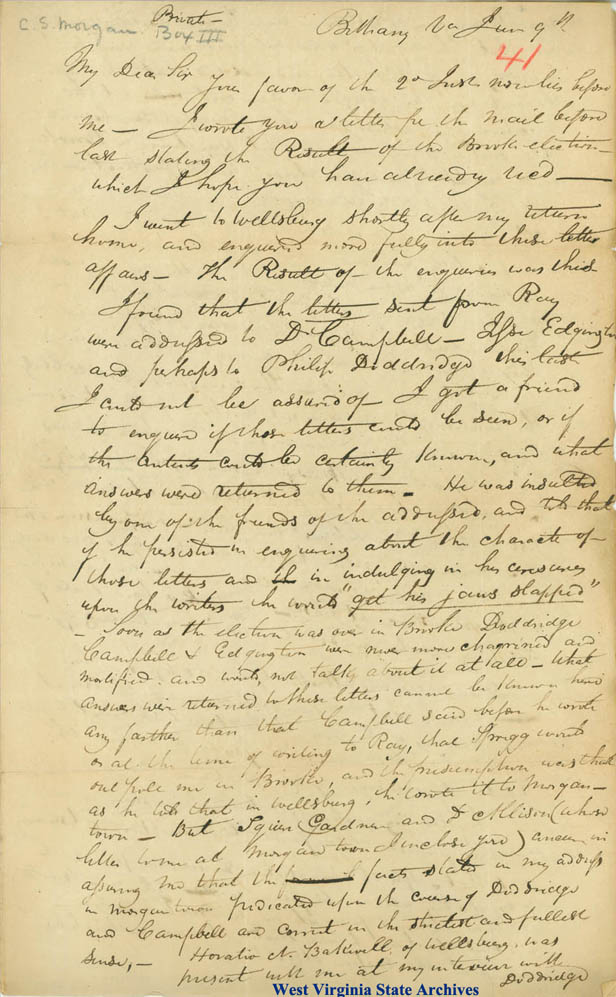 Private
C. S. Morgan Box III
Bethany Va June 9th
41
My Dear Sir Your favor of the 2d Inst now lies before
me — I wrote you a letter per the mail before
last stating the Result of the Brooke election —
which I hope you have already recd —
I went to Wellsburg shortly after my return
home, and enquired more fully into these letter
affairs — The Result of the enquiries was this
I found that the letters sent from Ray
were addressed to Dr Campbell — Jesse Edgington
and perhaps to Philip Doddridge this last
I could not be assured of I got a friend
to enquire if those letters could be seen, or if
the contents could be certainly known, and what
answers were returned to them — He was insulted
by one of the friends of the addressed, and told that
if he persisted in enquiring about the character of
those letters and in indulging in his censures
upon the writers he would "get his jaws slapped"
— Soon as the election was over in Brooke Doddridge
Campbell & Edgington were never more chagrined and
mortified and would not talk about it at all — What
answers were returned to those letters cannot be known here
any farther than that Campbell said before he wrote
or at the time of writing to Ray, that Sprigg would
out pole me in Brooke, and the presumption was that
as he told that in Wellsburg, he wrote it to Morgan-
town — But Squire Gardner and D. Allison (whose
letter to me at Morgantown I inclose you) concur in
assuring me that the facts stated in my address
in Morgantown predicated upon the course of Doddridge
and Campbell are correct in the strictest and fullest
sense, — Horatio N. Bakewell of Wellsburg was
present with me at my interview with
Doddridge
West Virginia State Archives